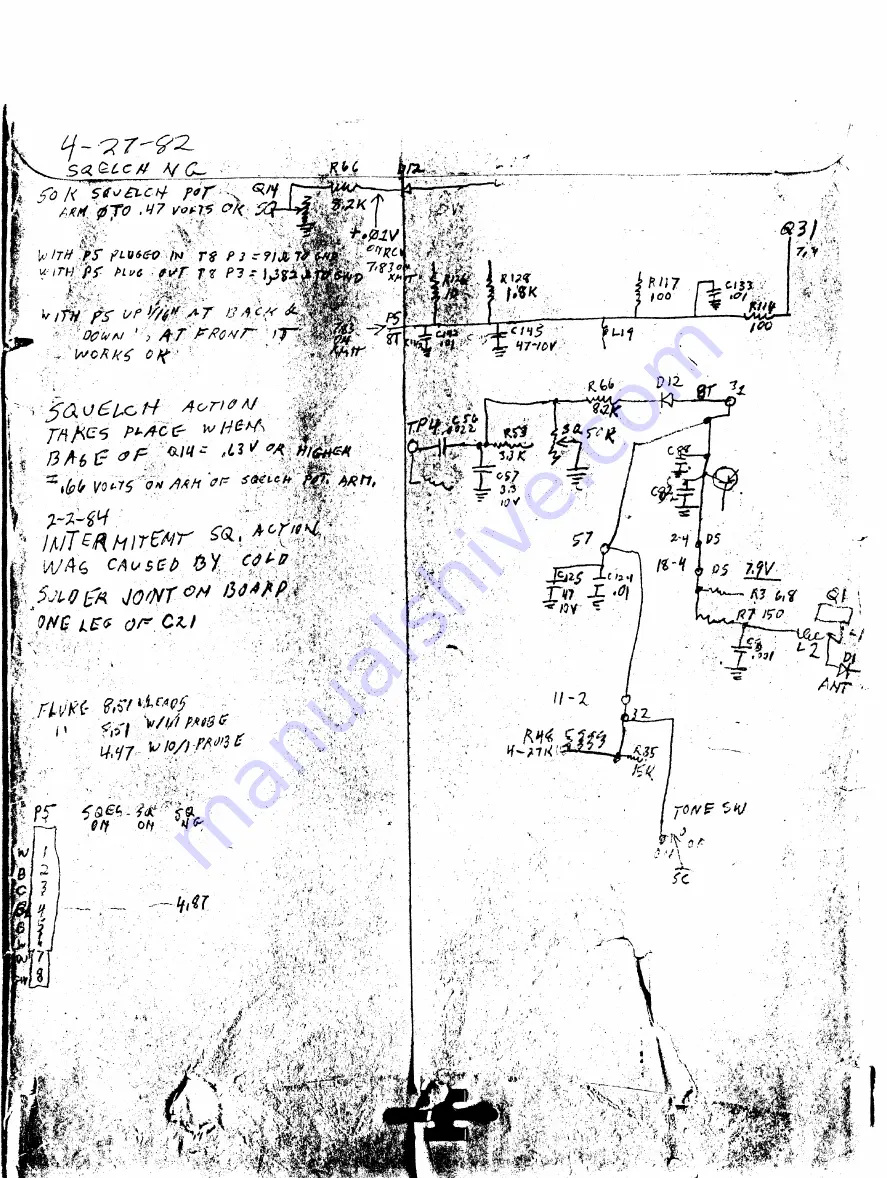 4-27-82
SQELCH NG
50K SQUELCH POT
ARM Ø TO .47 VOLTS OK
Q14
SQ
R66
8.2K
D12
+.01V
ON RCV
7.83 ON
XMT
WITH P5 PLUGED IN T8 P3 = 91
WITH P5 PLUG OUT T8 P3 = 1,382
WITH P5 UP 1/16" AT BACK &
DOWN ', AT FRONT IT
WORKS OK
P5
8T
10
R128
1.8K
C145
47-10V
L19
R117
100
C133
.01
R114
100
Q31
SQUELCH ACTION
TAKES PLACE WHEN
BASE OF Q14 = .63V OR HIGHER
= .66 VOLTS ON ARM OF SQELCH POT. ARM.
2-2-84
INTERMITENT SQ. ACTION
WAS CAUSED BY COLD
SOLDER JOINT ON BOARD
ONE LEG OF C21
TP4
C56
.0022
R53
3.3K
C57
3.3
10V
R66
8.2K
D12
8T
31
SQ
50K
C88
57
C125
47
10V
.01
2-4
D5
18-4
D5
7.9V
R3 6.8
R7 150
.001
L2
L1
Q1
D1
ANT
11-2
32
R48
4-27K
R35
15K
TONE SW
SC
FLUKE 8.51 W LEADS
" 8.51 W/1/1 PROBE
4.47 W 10/1 PROBE
P5
SQ
ON
SQ
NG
W 1
B 2
C 3
4
4.87
7
8
manualshive.com